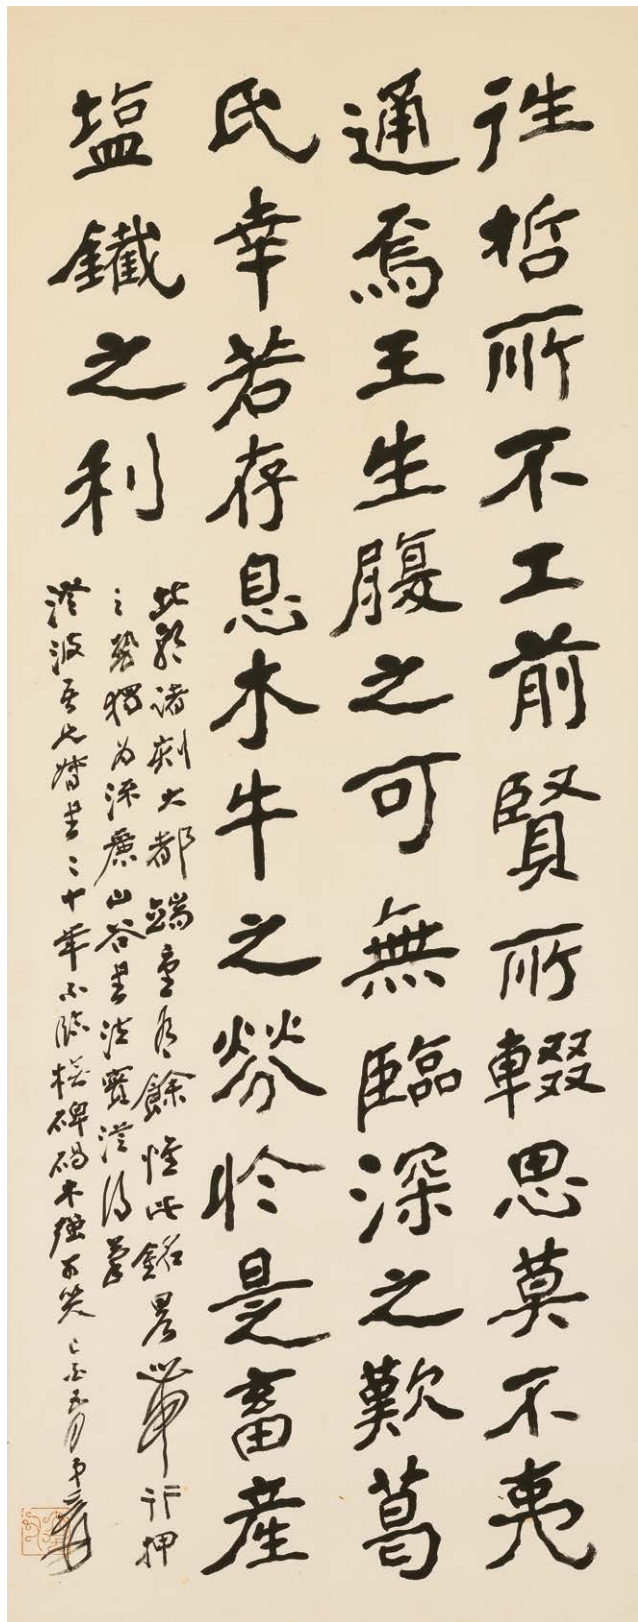 往哲所不工前賢所輟思莫不夷
通焉王生履之可無臨深之歎葛
氏幸若存息木牛之勞於是畜產
塩鐵之利
北魏諸刻大都端重有餘惟此銘畧帶行押
之勢獨为流麗山谷書法實從得筆
波吾兄書二十年不臨模碑碣木強可笑 五月弟爰